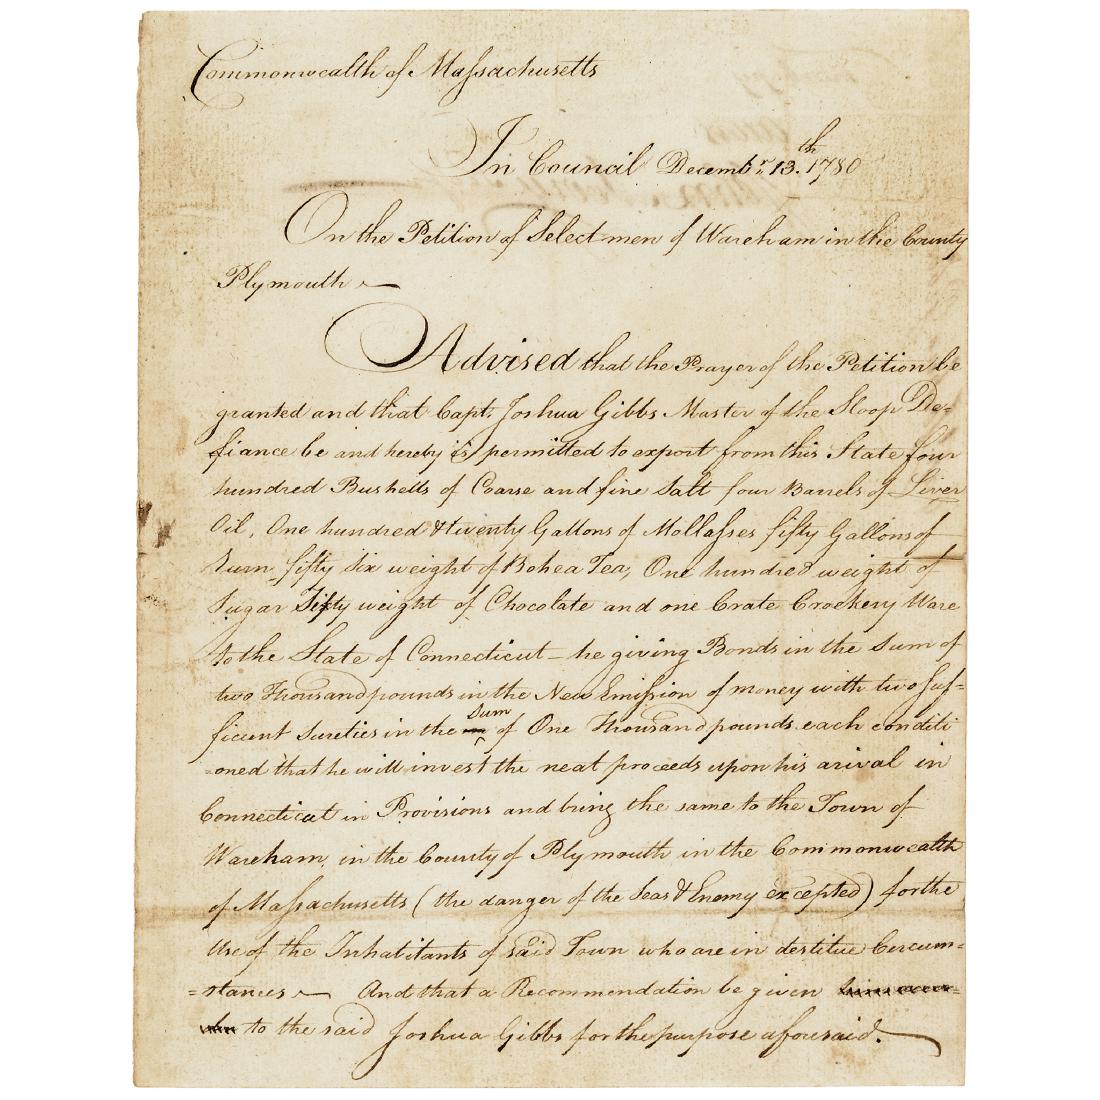 Commonwealth of Massachusetts
In Council Decembr. 13.th 1780
On the Petition of Selectmen of Wareham in the County
Plymouth
Advised that the Prayer of the Petition be
granted and that Capt. Joshua Gibbs Master of the Sloop De-
fiance be and hereby is permitted to export from this State four
hundred Bushells of Coarse and fine Salt four Barrels of Liver
Oil, One hundred & twenty Gallons of Mollasses fifty Gallons of
Rum fifty six weight of Bohea Tea, One hundred weight of
Sugar Fifty weight of Chocolate and one Crate Crockery Ware
to the State of Connecticut - he giving Bonds in the Sum of
two Thousand pounds in the New Emission of money with two Suf-
ficient Sureties in the Sum of One Thousand pounds each conditi
=oned that he will invest the neat proceeds upon his arival in
Connecticut in Provisions and bring the same to the Town of
Wareham, in the County of Plymouth in the Commonwealth
of Massachusetts (the danger of the Seas & Enemy excepted) for the
Use of the Inhabitants of said Town who are in destitue Circum=
=stances - And that a Recommendation be given
to the said Joshua Gibbs for the purpose aforesaid.